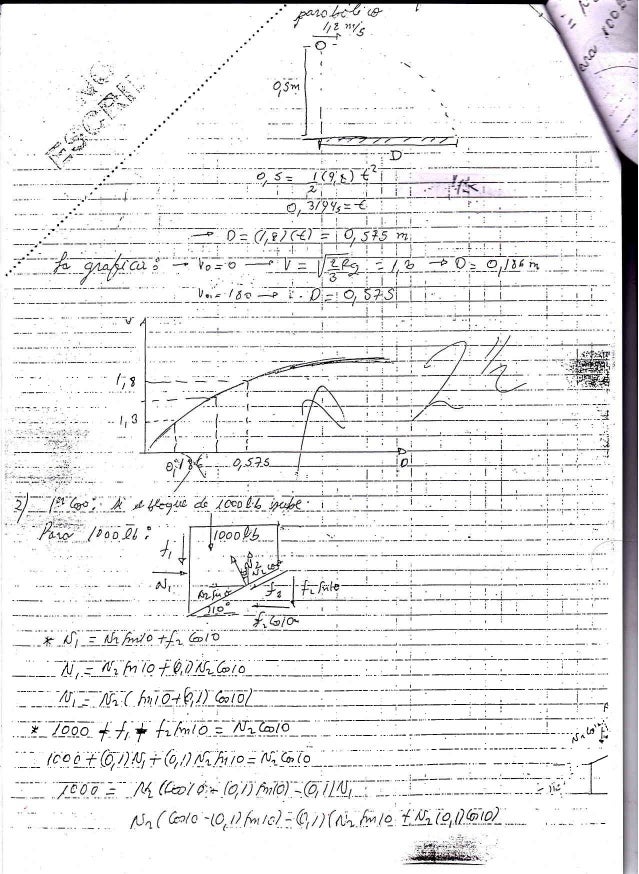 parabólico
1,2 m/s
0,5m
D
NO
ESCRI
0,5 = 1/2 (9,8) t²
0,3194s = t
→ D = (1,8)(t) = 0,575 m
La grafica: → Vo=0 → V = √(2/3 Rg) = 1,3 → D = 0,186 m
Vo = 180 → ∴ D = 0,575
V
1,8
1,3
0,186
0,575
D
2 1/2
2) 1er Caso: Si el bloque de 1000 lb sube.
Para 1000 lb:
1000 lb
f1
N1
N2
N2 Cos
N2 Sin
f2
f2 Sin10
10°
f2 Cos10
* N1 = N2 Sin10 + f2 Cos10
N1 = N2 Sin10 + (0,1) N2 Cos10
N1 = N2 ( Sin10 + (0,1) Cos10)
* 1000 + f1 + f2 Sin10 = N2 Cos10
1000 + (0,1) N1 + (0,1) N2 Sin10 = N2 Cos10
1000 = N2 (Cos10 - (0,1) Sin10) - (0,1) N1
N2 ( Cos10 - (0,1) Sin10) - (0,1) (N2 Sin10 + N2 (0,1) Cos10)